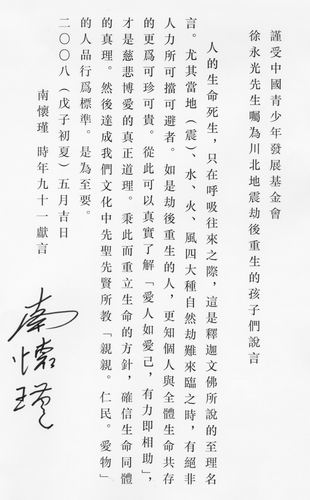 謹受中國青少年發展基金會
徐永光先生囑為川北地震劫後重生的孩子們說言
人的生命死生，只在呼吸往來之際，這是釋迦文佛所說的至理名
言。尤其當地（震）、水、火、風四大種自然劫難來臨之時，有絕非
人力所可擋可避者。如是劫後重生的人，更知個人與全體生命共存
的更為可珍可貴。從此可以真實了解「愛人如愛己，有力即相助」，
才是慈悲博愛的真正道理。秉此而重立生命的方針，確信生命同體
的真理。然後達成我們文化中先聖先賢所教「親親。仁民。愛物」
的人品行為標準。是為至要。
二○○八（戊子初夏）五月吉日
南懷瑾　時年九十一獻言
南懷瑾